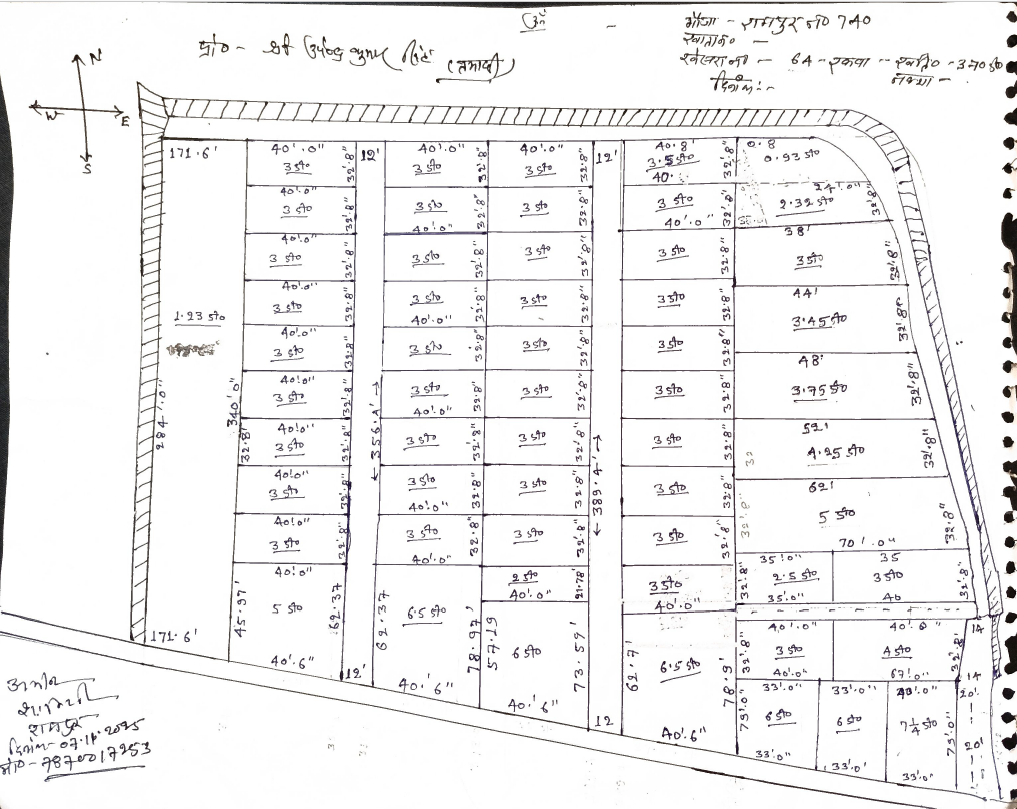 ॐ
मौजा - रामपुर नं० 740
खाता नं० -
खेसरा नं० - 64 - रकवा -
नक्शा -
दिनांक :-
प्रो० - श्री उपेन्द्र कुमार सिंह
N
W E
S
171.6' 40'.0" 12' 40'.0" 40'.0" 12' 40.8 0.8
3 डि० 32'.8" 3 डि० 32'.8" 3 डि० 32'.8" 3.5 डि० 32'.8" 0.93 डि०
40.
40'.0" 24'.0"
3 डि० 32'.8" 3 डि० 32'.8" 3 डि० 32'.8" 3 डि० 32'.8" 2.32 डि० 32'.8"
40'.0" 40'.0"
40'.0" 38'
3 डि० 32'.8" 3 डि० 32'.8" 3 डि० 32'.8" 3 डि० 32'.8" 3 डि० 32'.8"
40'.0" 44'
3 डि० 32'.8" 3 डि० 32'.8" 3 डि० 32'.8" 3 डि० 32'.8" 3.45 डि० 32'.8"
1.23 डि० 40'.0"
40'.0" 48'
3 डि० 32'.8" 3 डि० 32'.8" 3 डि० 32'.8" 3 डि० 32'.8" 3.75 डि० 32'.8"
284'.0" 340'.0" 356.4' 389.4'
40'.0" 52'
3 डि० 32'.8" 3 डि० 32'.8" 3 डि० 32'.8" 3 डि० 32'.8" 4.25 डि० 32'.8"
40'.0"
40'.0" 62'
32.8' 3 डि० 32'.8" 3 डि० 32'.8" 3 डि० 32'.8" 3 डि० 32'.8" 32 5 डि० 32'.8"
40'.0" 70'.0"
3 डि० 32'.8" 3 डि० 32'.8" 3 डि० 32'.8" 3 डि० 32'.8" 32'.8"
40'.0"
40'.0"
3 डि० 32'.8" 3 डि० 32'.8" 3 डि० 32'.8" 3 डि० 32'.8" 32'.8"
40'.0"
35'.0" 35
2 डि० 21.78' 3 डि० 32'.8" 2.5 डि० 3 डि० 32'.8"
40'.0" 40'.0" 40'.0" 35'.0" 40
45.97' 5 डि० 62.37 62.37 6.5 डि० 78.97' 57.19 6 डि० 73.59' 62.7' 6.5 डि० 78.9'
40'.0" 40'.6" 14
32'.8" 3 डि० 4 डि० 32'.8"
40'.0" 67'.0" 14
171.6' 40'.6" 12' 40'.6" 40'.6" 12 40'.6"
33'.0" 33'.0" 43'.0" 20'
73'.0" 6 डि० 6 डि० 7 1/4 डि० 73'.0"
33'.0" 33'.0' 33'.0" 20'
अमीन
रामपुर
दिनांक- 07.11.2025
मो०- 7870017253